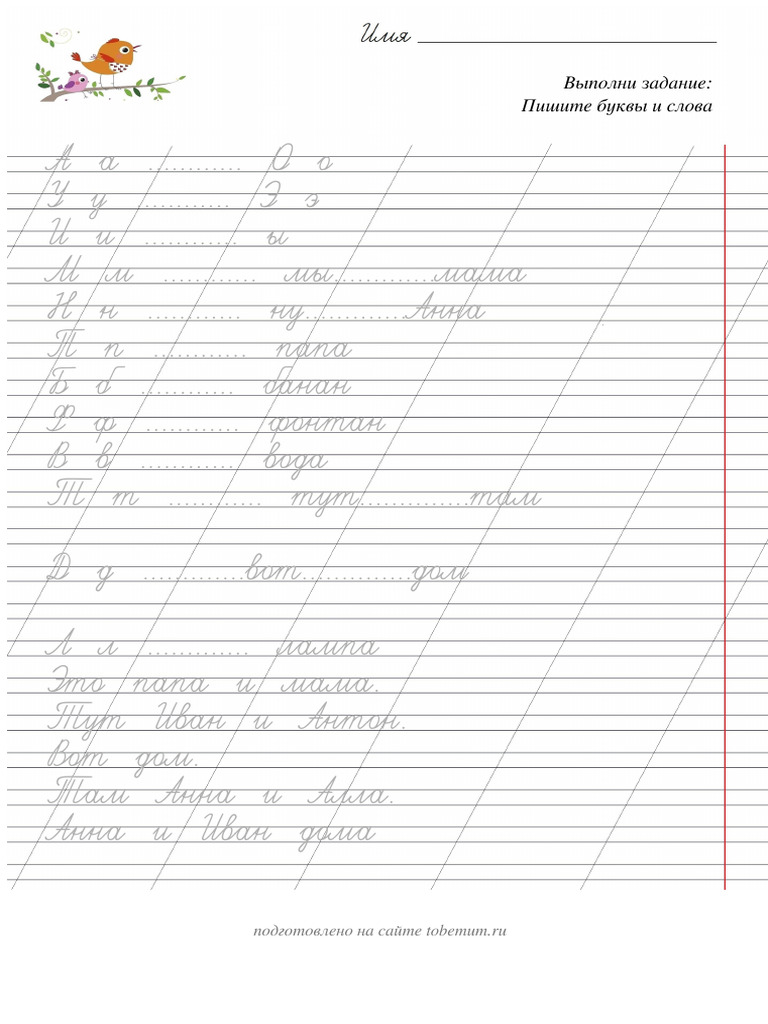 Имя
Выполни задание:
Пишите буквы и слова
А а ............ О о
У у ........... Э э
И и ............ ы
М м ............ мы.............мама
Н н ............ ну.............Анна
П п ............ папа
Б б ............ банан
Ф ф ............ фонтан
В в ............ вода
Т т ............ тут..............там
Д д .............вот..............дом
Л л ............. лампа
Это папа и мама.
Тут Иван и Антон.
Вот дом.
Там Анна и Алла.
Анна и Иван дома
подготовлено на сайте tobemum.ru